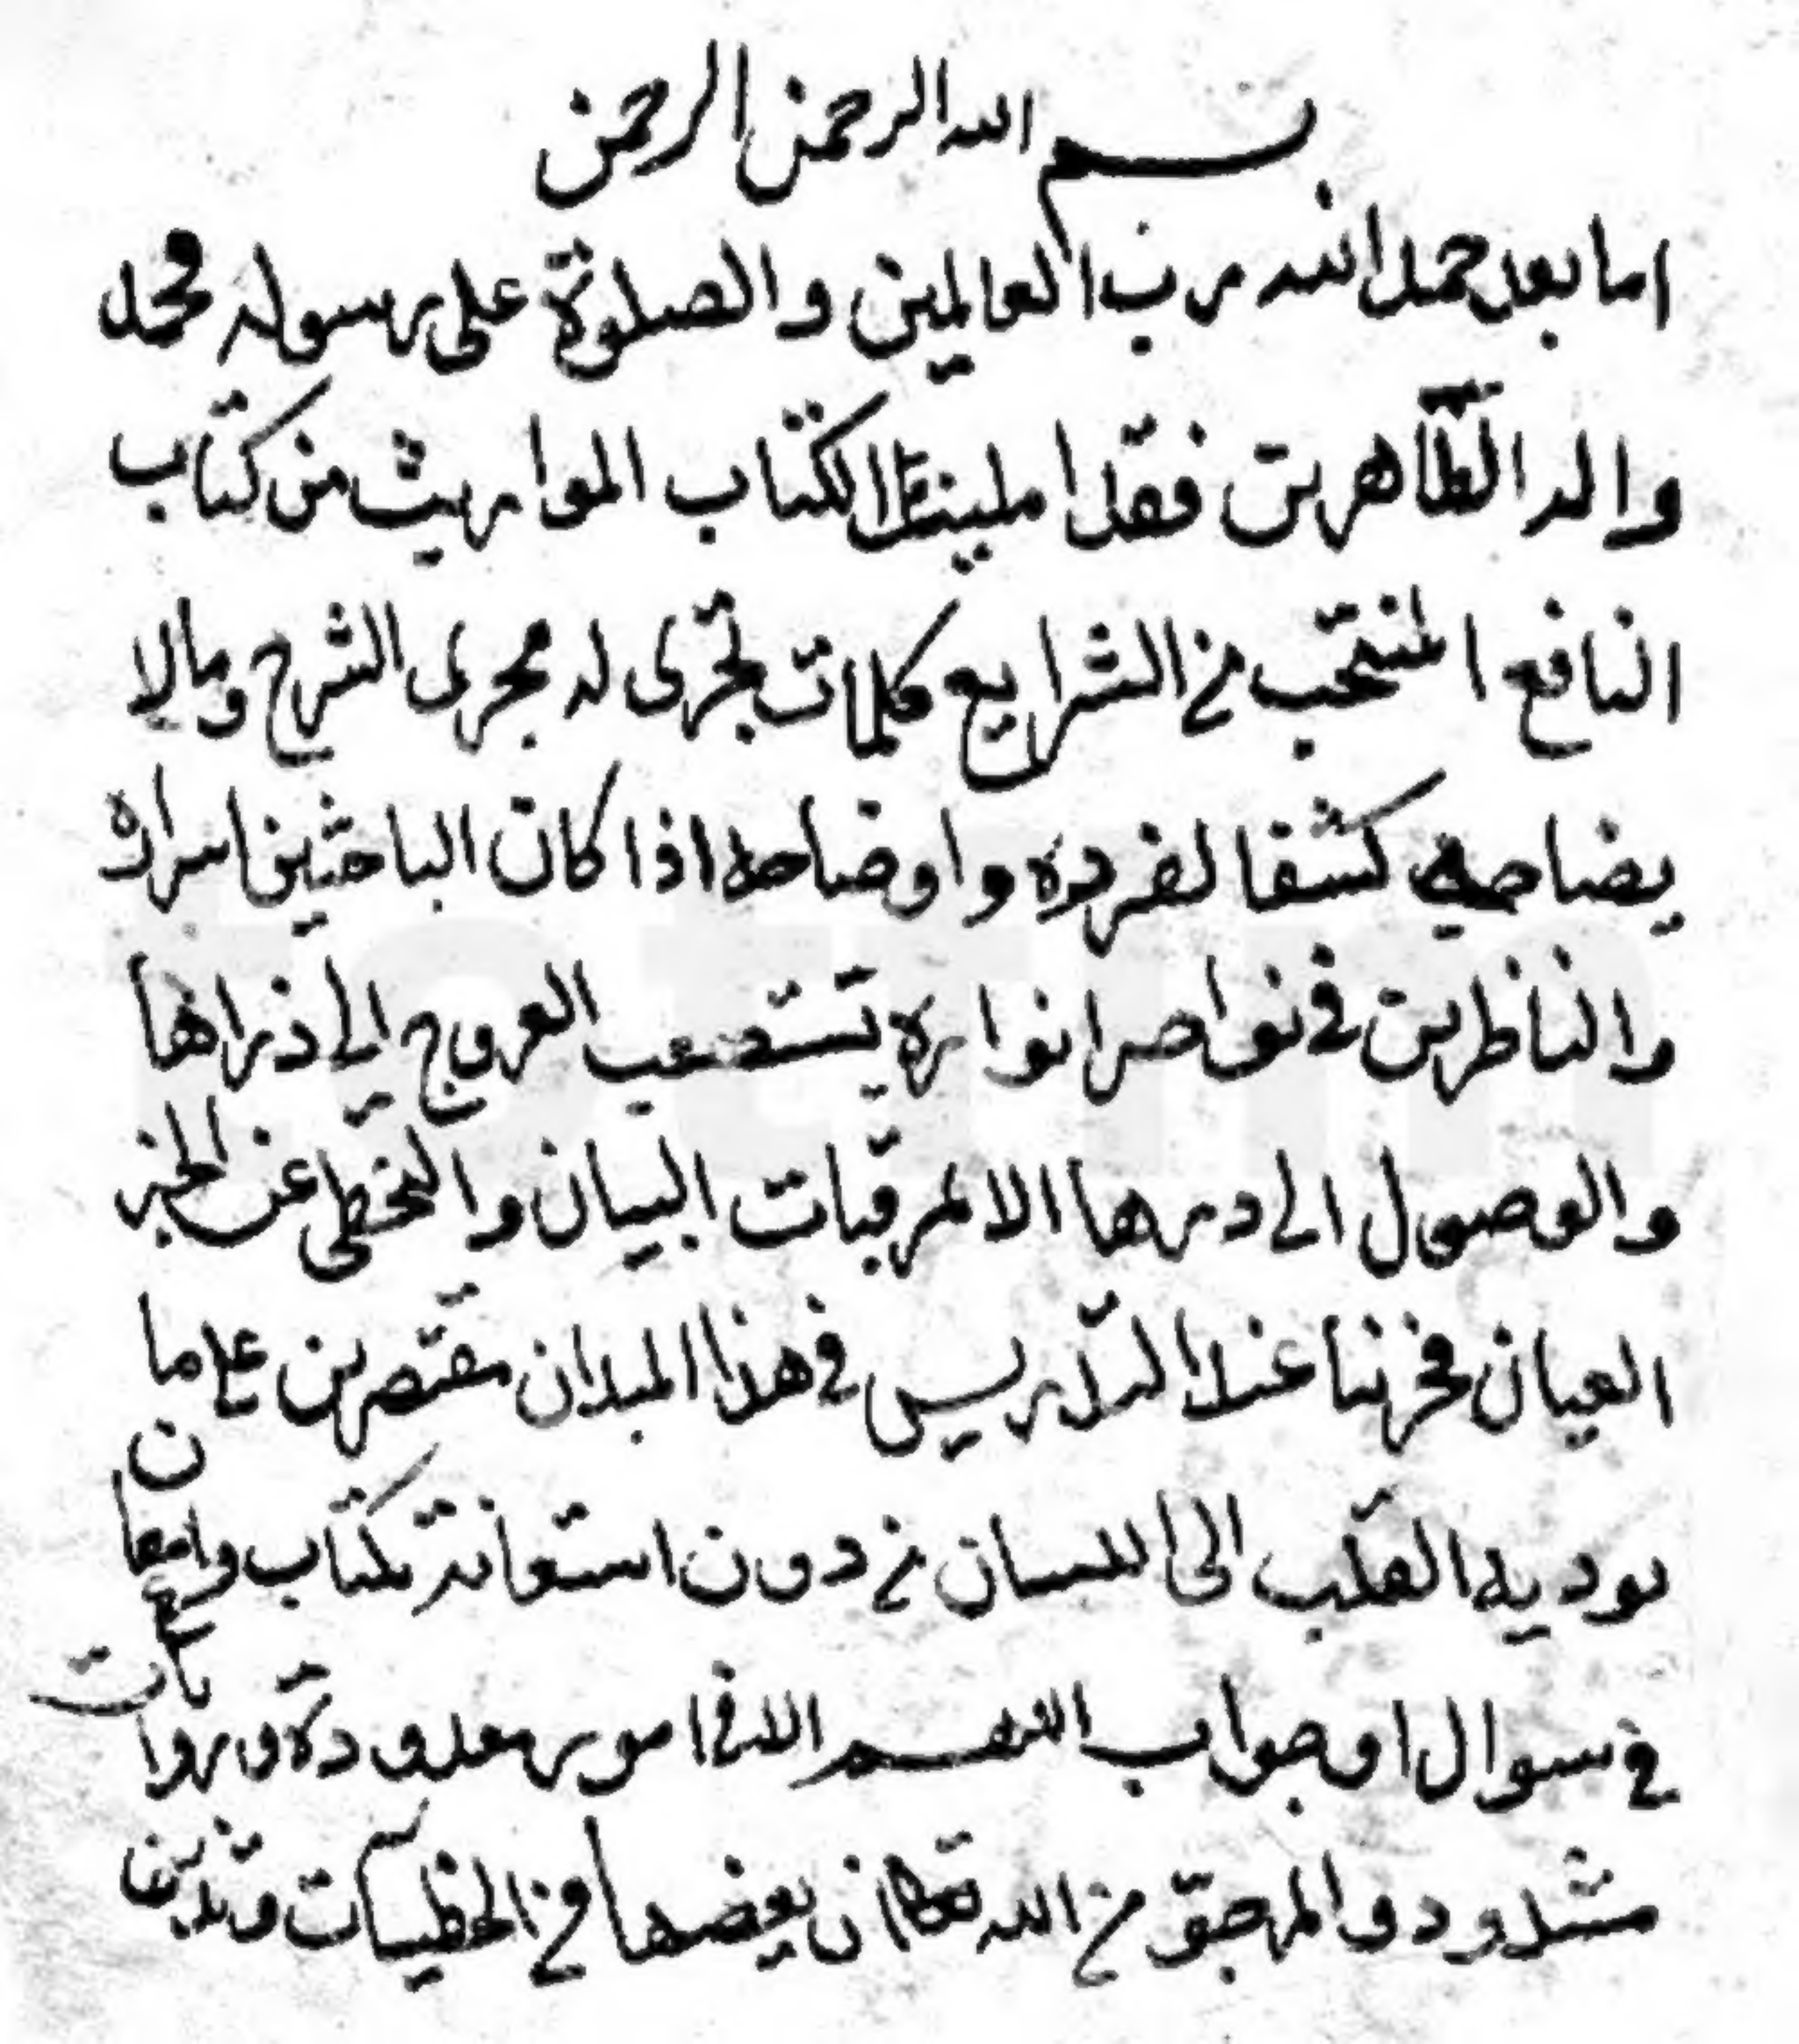 بسم الله الرحمن الرحمن
اما بعد حمد الله رب العالمين والصلوة على رسوله محمد
واله الطاهرين فقد املينا لكتاب المواريث من كتاب
النافع المنتخب من الشرايع كلمات تجرى له مجرى الشرح ومالا
كشفا واوضاحه اذا كان الباحثين اسراره
والناظرين في نواصر انواره يستصعب العروج الى ذراها
والوصول الى درها الا لمرقبات البيان والتخطى عن الخبر
العيان فخرنا عند التدريس في هذا الميدان مقتصرين على ما
يوديه القلب الى اللسان من دون استعانة بكتاب وامعان
في سوال او جواب اللهم الا في امور معدودة وروايات
مشدودو المرجو من الله تعالى ان يعضها من الخطيات